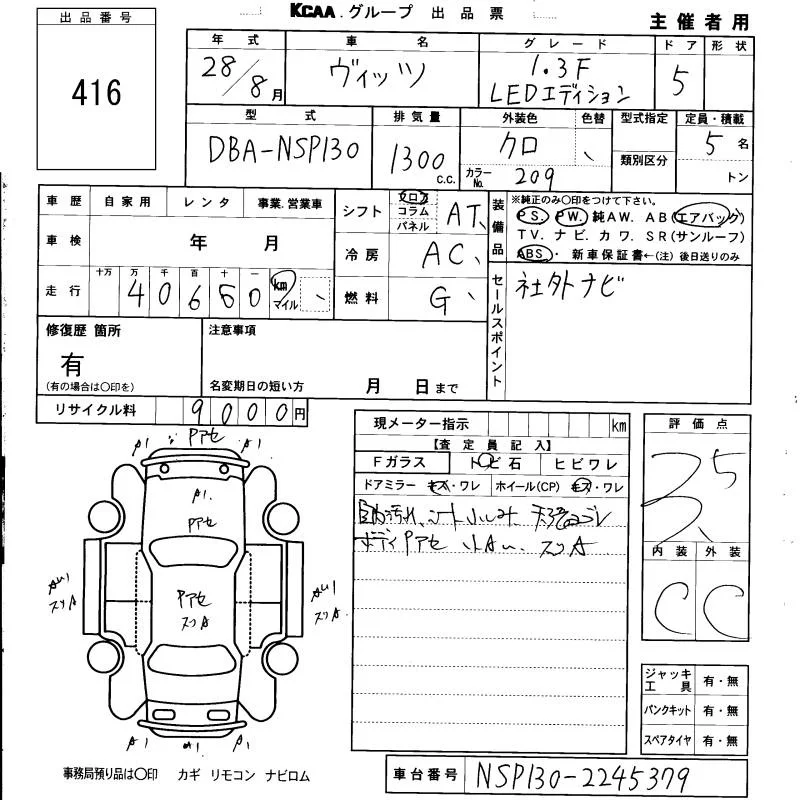 KCAA.グループ 出品票
主催者用
出品番号
416
年式 車名 グレード ドア 形状
28/8月 ヴィッツ 1.3F LEDエディション 5
型式 排気量 外装色 色替 型式指定 定員・積載
DBA-NSP130 1300 c.c. クロ 5名
カラーNo. 209 類別区分 トン
車歴 自家用 レンタ 事業.営業車
車検 年 月
走行 十万 万 千 百 十 一 km マイル
40660
シフト フロア コラム パネル AT
冷房 AC
燃料 G
装備品
※純正のみ〇印をつけて下さい。
PS. PW. 純AW. AB(エアバック)
TV. ナビ. カワ. SR(サンルーフ)
ABS・ 新車保証書←(注) 後日送りのみ
セールスポイント
社外ナビ
修復歴 箇所
有
(有の場合は〇印を)
注意事項
名変期日の短い方 月 日まで
リサイクル料 9000円
現メーター指示 km
【査定員記入】
Fガラス トビ石 ヒビワレ
ドアミラー キズ・ワレ ホイール(CP) キズ・ワレ
ボディPアセ 小AU. スリA
評価点
3.5
内装 外装
C C
A1 Pアセ A1
A1.
Pアセ
AU1
スリA
Pアセ
スリA
AU1
スリA
A1 A1 A1
ジャッキ工具 有・無
パンクキット 有・無
スペアタイヤ 有・無
事務局預り品は〇印 カギ リモコン ナビロム
車台番号 NSP130-2245379